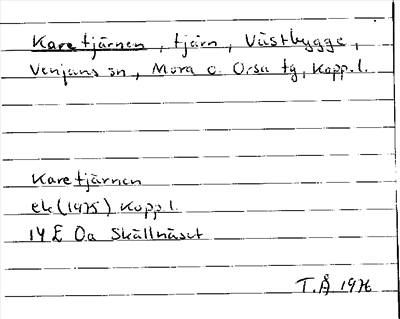 Karetjärnen, tjärn, Västbygge,
Venjans sn, Mora o. Orsa tg, Kopp. l.
Karetjärnen
ek (1975) Kopp l.
14 E 0a Skällnäset
T.Å 1976